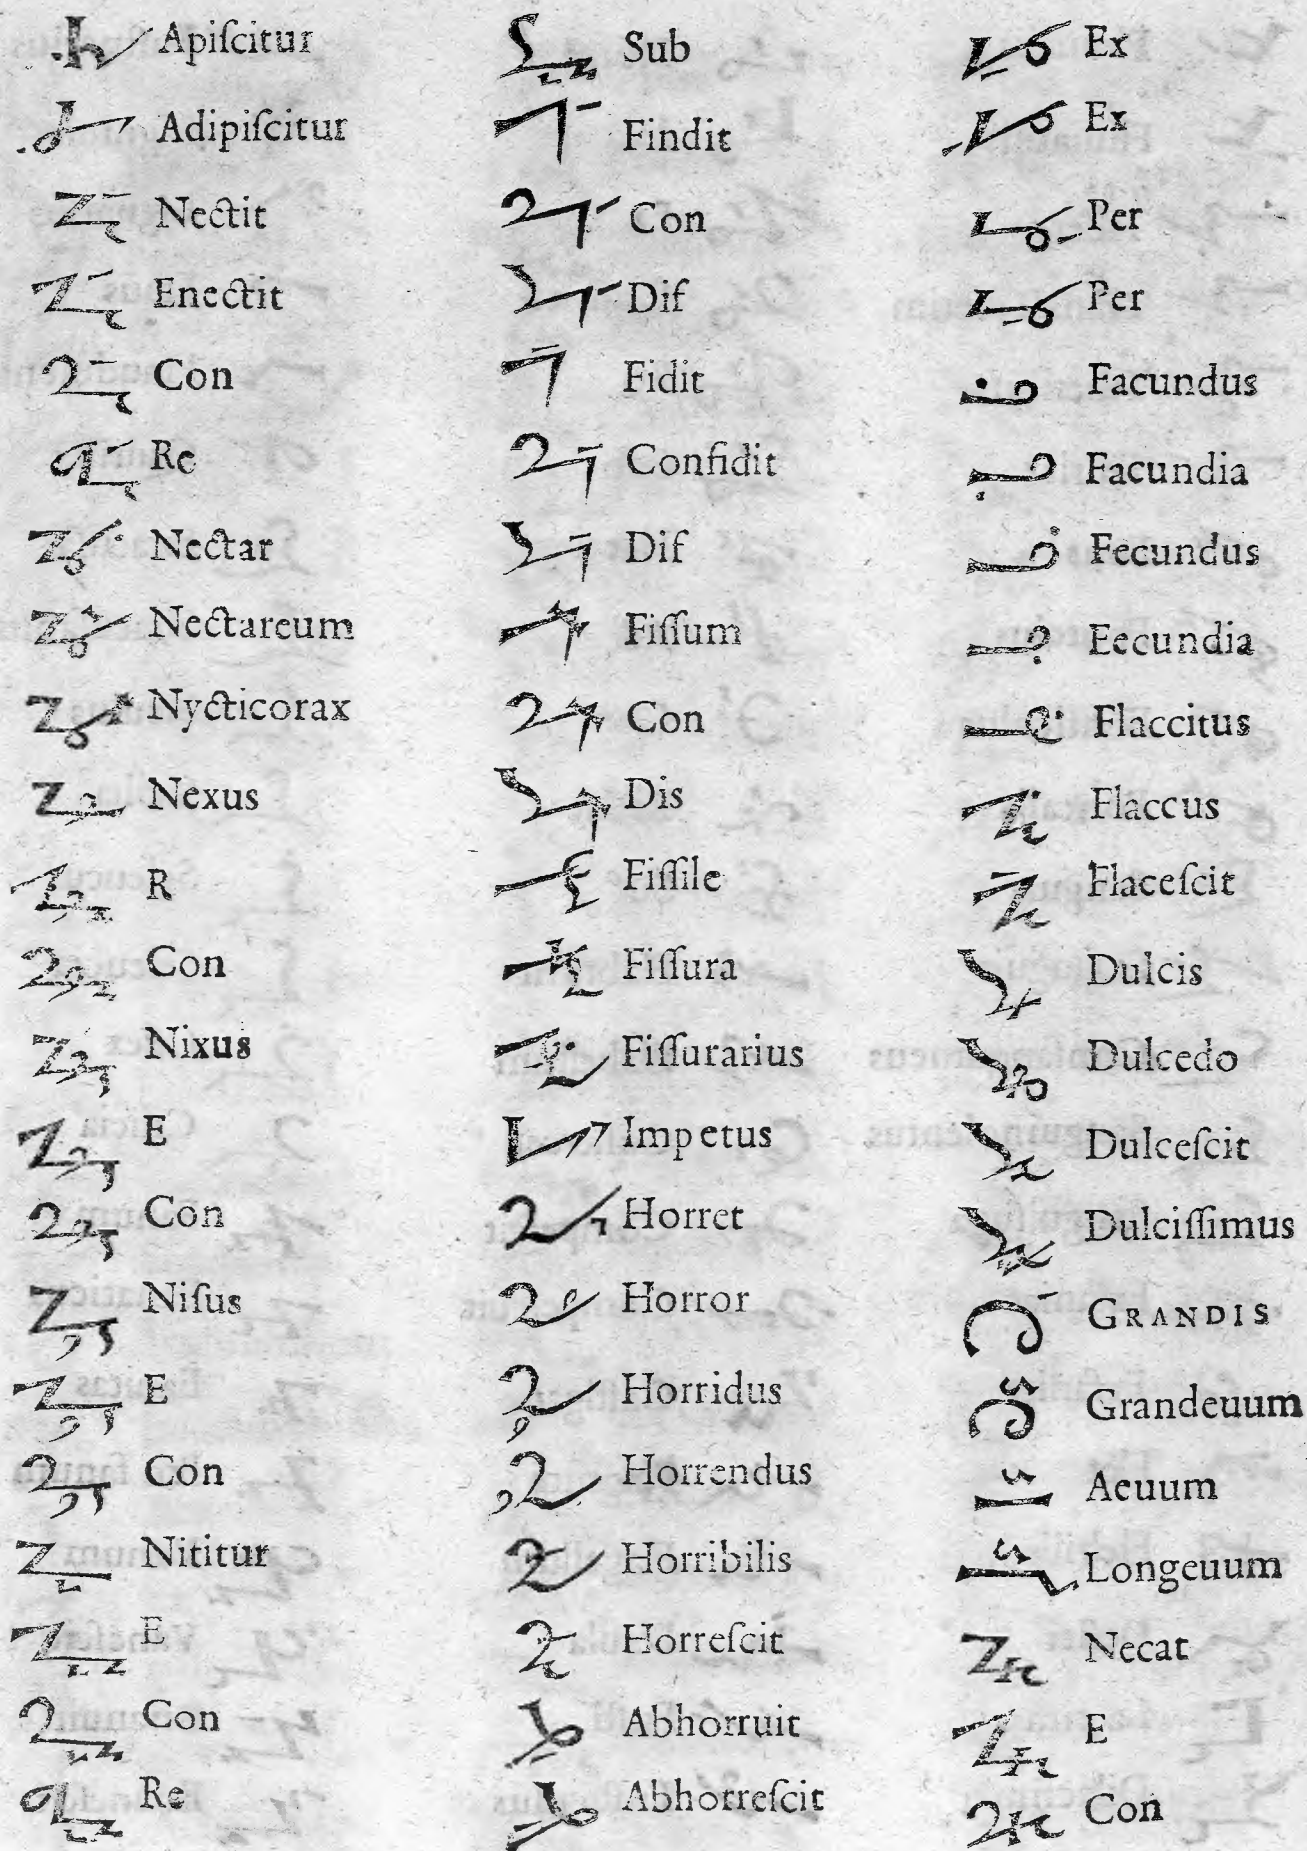 Apiſcitur
Adipiſcitur
Nectit
Enectit
Con
Re
Nectar
Nectareum
Nycticorax
Nexus
R
Con
Nixus
E
Con
Niſus
E
Con
Nititur
E
Con
Re
Sub
Findit
Con
Dif
Fidit
Confidit
Dif
Fiſſum
Con
Dis
Fiſſile
Fiſſura
Fiſſurarius
Impetus
Horret
Horror
Horridus
Horrendus
Horribilis
Horreſcit
Abhorruit
Abhorreſcit
Ex
Ex
Per
Per
Facundus
Facundia
Fecundus
Eecundia
Flaccitus
Flaccus
Flaceſcit
Dulcis
Dulcedo
Dulceſcit
Dulciſſimus
GRANDIS
Grandeuum
Aeuum
Longeuum
Necat
E
Con